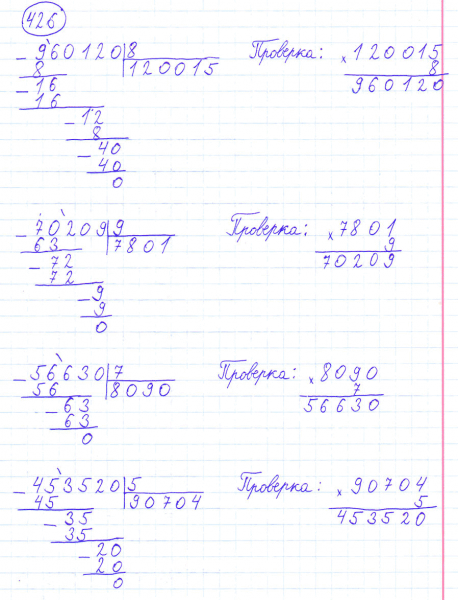 426
- 960120 | 8 Проверка: × 120015
8 120015 8
- 16 960120
16
- 12
8
- 40
40
0
- 70209 | 9 Проверка: × 7801
63 7801 9
- 72 70209
72
- 9
9
0
- 56630 | 7 Проверка: × 8090
56 8090 7
- 63 56630
63
0
- 453520 | 5 Проверка: × 90704
45 90704 5
- 35 453520
35
- 20
20
0